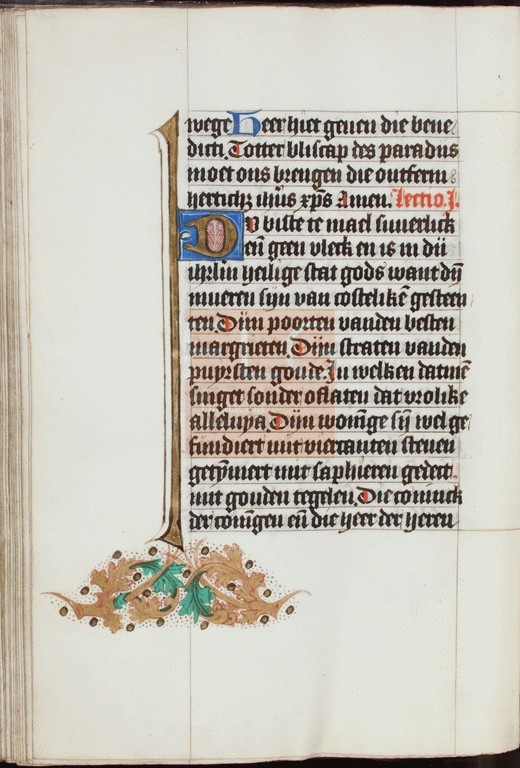 wege Heer hier geuen die bene
dicti. Totter bliscap des paradiis
moet ons brengen die ontferm
hertichz ihūs xp̄s Amen. Lectio. j.
DV biste te mael suuerlick
en̄ geen vleck en is in dij
ihrlm heilige stat gods want dÿ
mueren sijn van costelikē gesteen
ten Dijn poorten vanden besten
margrieten. Dijn straten vanden
puyrsten goude. In welken datmē
singet sonder oflaten dat vrolike
alleluya. Dijn wonīge sÿ wel ge
fundiert mit viercanten stenen
getÿmert mit saphieren gedect
mit gouden tegelen. Die coninck
der conīgen en̄ die heer der heren